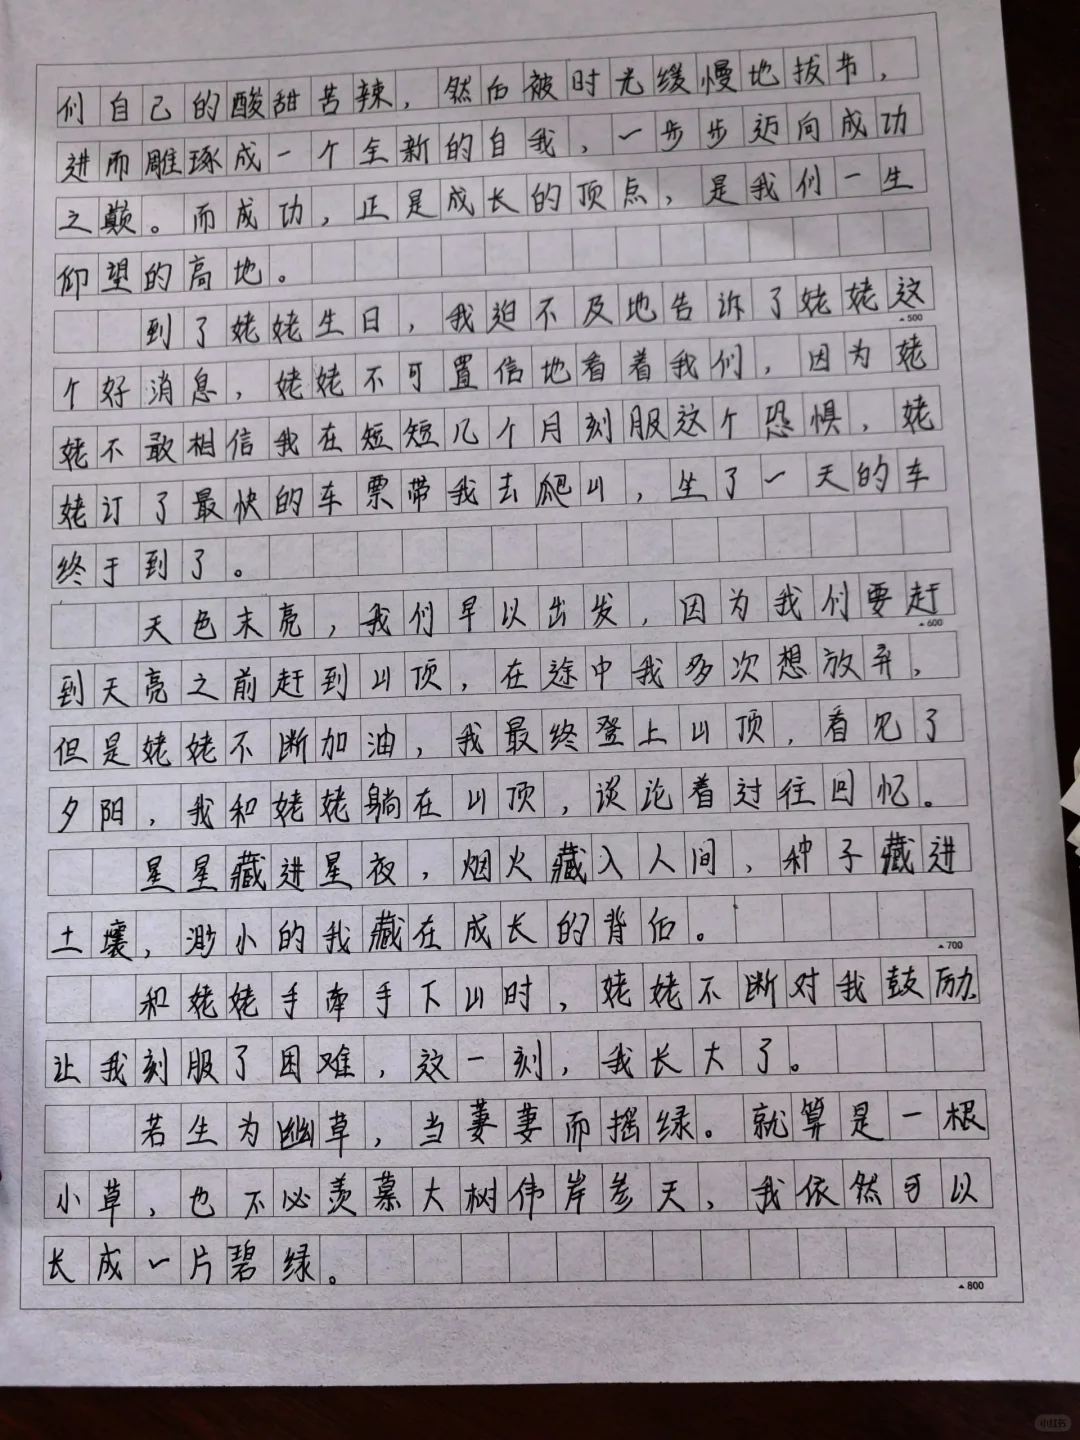 们自己的酸甜苦辣，然后被时光缓慢地拔节，
进而雕琢成一个全新的自我，一步步迈向成功
之巅。而成功，正是成长的顶点，是我们一生
仰望的高地。
到了姥姥生日，我迫不及地告诉了姥姥这
▲500
个好消息，姥姥不可置信地看着我们，因为姥
姥不敢相信我在短短几个月刻服这个恐惧，姥
姥订了最快的车票带我去爬山，坐了一天的车
终于到了。
天色末亮，我们早以出发，因为我们要赶
▲600
到天亮之前赶到山顶，在途中我多次想放弃，
但是姥姥不断加油，我最终登上山顶，看见了
夕阳，我和姥姥躺在山顶，谈论着过往回忆。
星星藏进星夜，烟火藏入人间，种子藏进
土壤，渺小的我藏在成长的背后。
▲700
和姥姥手牵手下山时，姥姥不断对我鼓励，
让我刻服了困难，这一刻，我长大了。
若生为幽草，当萋萋而摇绿。就算是一根
小草，也不必羡慕大树伟岸参天，我依然可以
长成一片碧绿。
▲800
小红书